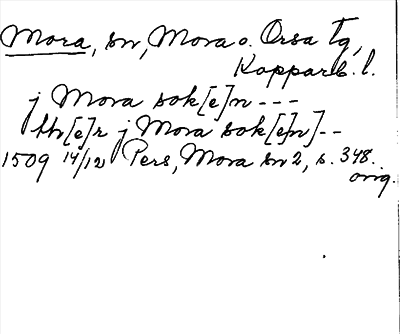 Mora, sn, Mora o. Orsa tg,
Kopparb. l.
j Mora sok[e]n ---
th[e]r j Mora sok[e]n] --
1509 14/12 Pers, Mora sn 2, s. 348.
orig.